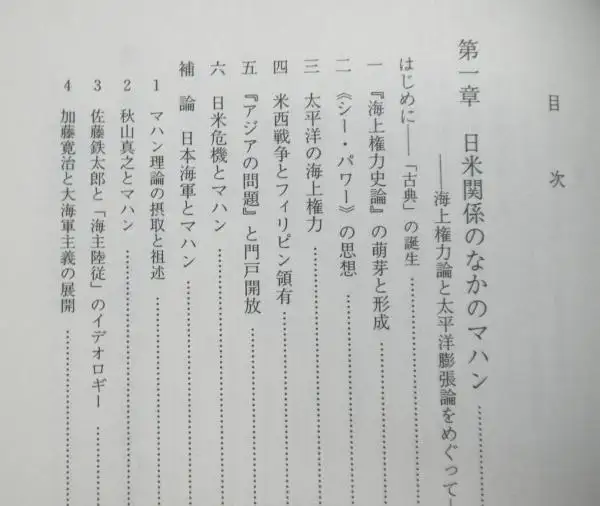 目次
第一章　日米関係のなかのマハン……
――海上権力論と太平洋膨張論をめぐって―
はじめに――「古典」の誕生……
一　『海上権力史論』の萌芽と形成……
二　《シー・パワー》の思想……
三　太平洋の海上権力……
四　米西戦争とフィリピン領有……
五　『アジアの問題』と門戸開放……
六　日米危機とマハン……
補論　日本海軍とマハン……
1　マハン理論の摂取と祖述……
2　秋山真之とマハン……
3　佐藤鉄太郎と「海主陸従」のイデオロギー……
4　加藤寛治と大海軍主義の展開……